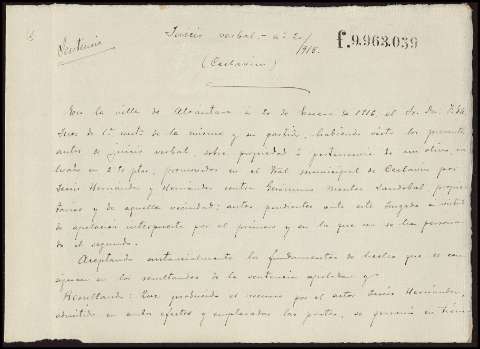 Sentencia
Juicio verbal - nº 20/1916.
f.9.963.039
(Ceclavin)
En la villa de Alcantara á 20 de Enero de 1916; el Sr. Dn.
Juez de 1ª inst.ª de la misma y su partido, habiendo visto los presentes
autos de juicio verbal, sobre propiedad ó pertenencia de un olivo, va
luado en 2 ptas, promovidos en el Tbal municipal de Ceclavin por
Jesús Hernandez y Hernandez contra Gerónimo Sandobal propie
tarios y de aquella vecindad; autos pendientes ante este Juzgado á virtud
de apelación interpuesta por el primero y en la que no se ha persona
do el segundo.
Aceptando sustancialmente los fundamentos de hechos que se con
signan en los resultandos de la sentencia apelada y
Resultando: Que producido el recurso por el actor Jesús Hernandez,
admitido en ambos efectos y emplazadas las partes, se personó en tiem